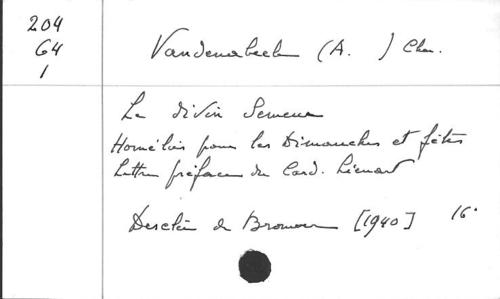 204
64
1
Vandenabeele (A. ) Chan.
Le divin Semeur
Homélies pour les Dimanches et fêtes
Lettre préface du Card. Liénart
Desclée de Brouwer [1940] 16°